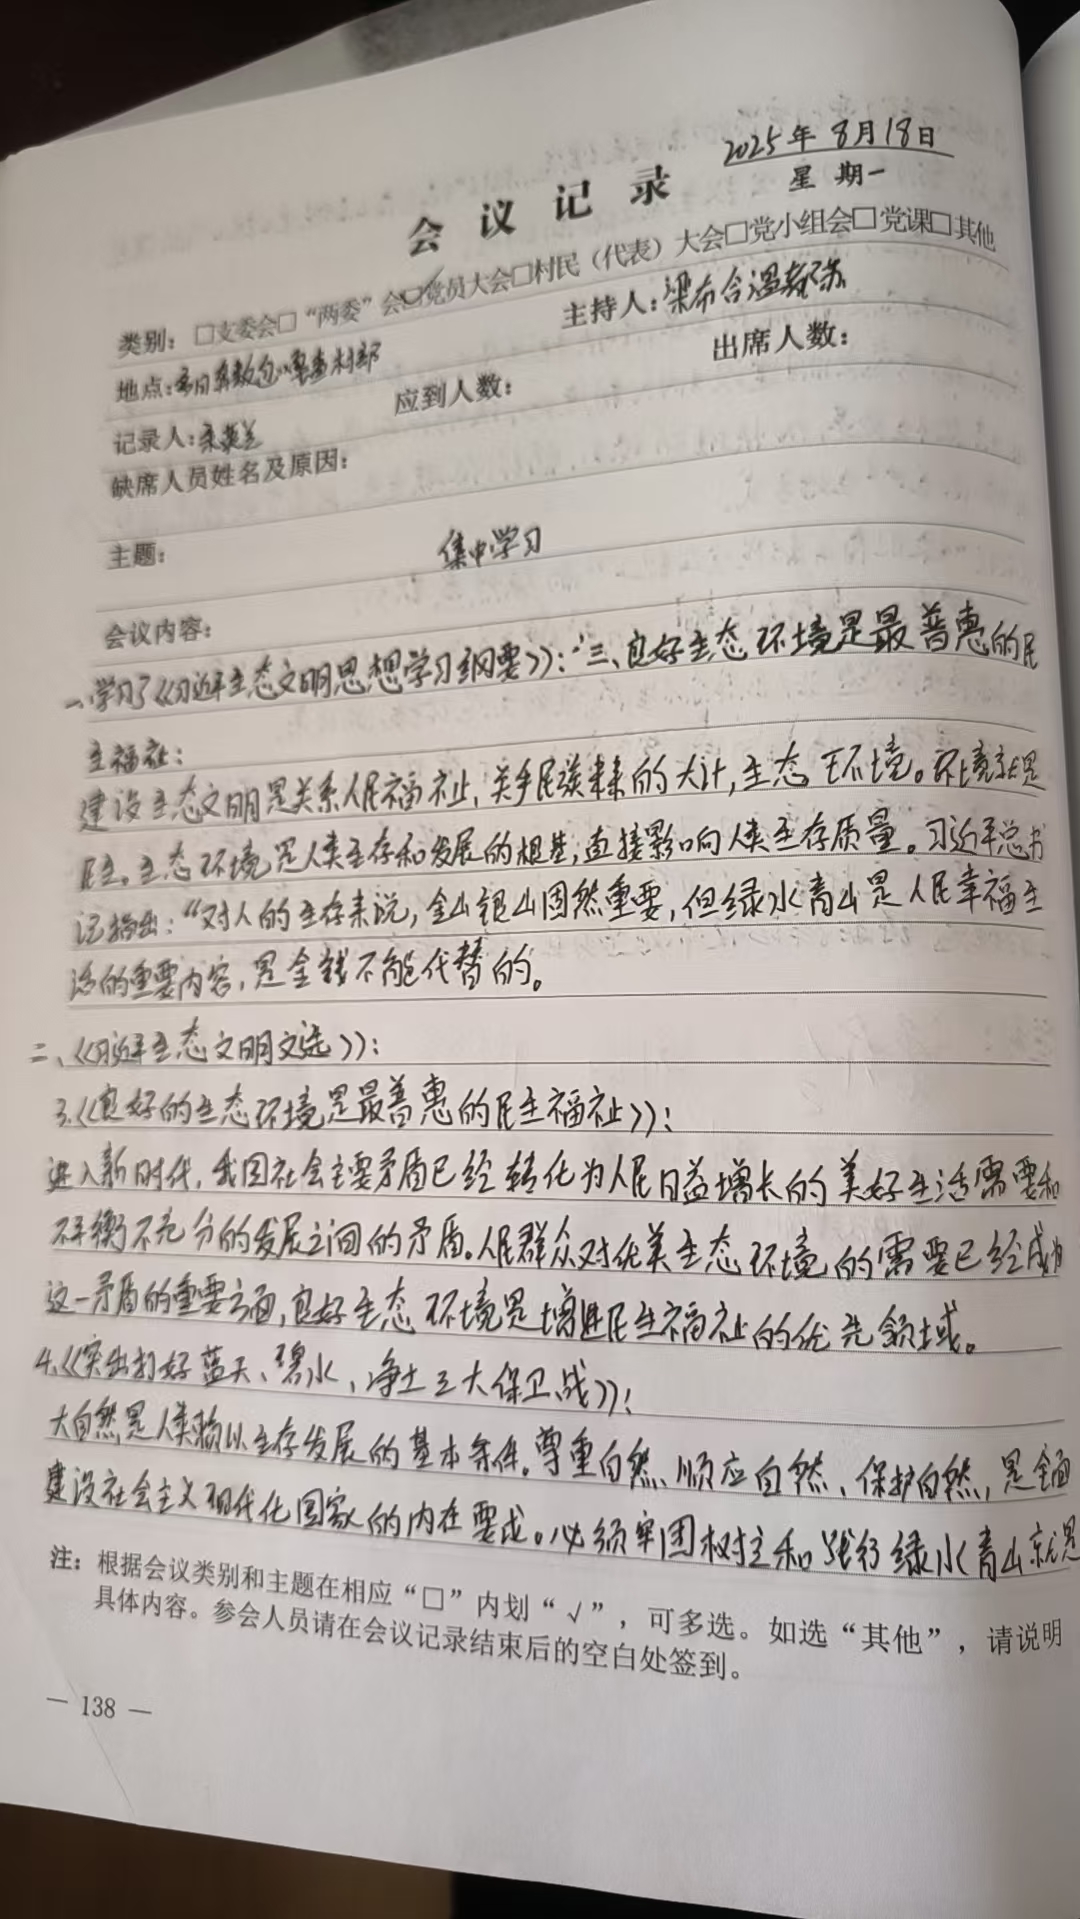 2025年 8月18日
星期一
会议记录
类别：□支委会□“两委”会☑党员大会□村民（代表）大会□党小组会□党课□其他
地点： 村部 主持人：梁布合
记录人： 应到人数： 出席人数：
缺席人员姓名及原因：
主题： 集中学习
会议内容：
一、学习了《习近平生态文明思想学习纲要》：“三、良好生态环境是最普惠的民
生福祉：
建设生态文明是关系人民福祉，关乎民族未来的大计，生态环境。环境就是
民生。生态环境是人类生存和发展的根基，直接影响人类生存质量。习近平总书
记指出：“对人的生存来说，金山银山固然重要，但绿水青山是人民幸福生
活的重要内容，是金钱不能代替的。
二、《习近平生态文明文选》：
3.《良好的生态环境是最普惠的民生福祉》：
进入新时代，我国社会主要矛盾已经转化为人民日益增长的美好生活需要和
不平衡不充分的发展之间的矛盾。人民群众对优美生态环境的需要已经成为
这一矛盾的重要方面，良好生态环境是增进民生福祉的优先领域。
4.《突出打好蓝天、碧水、净土三大保卫战》：
大自然是人类赖以生存发展的基本条件。尊重自然、顺应自然、保护自然，是全面
建设社会主义现代化国家的内在要求。必须牢固树立和践行绿水青山就是
注：根据会议类别和主题在相应“□”内划“√”，可多选。如选“其他”，请说明
具体内容。参会人员请在会议记录结束后的空白处签到。
— 138 —